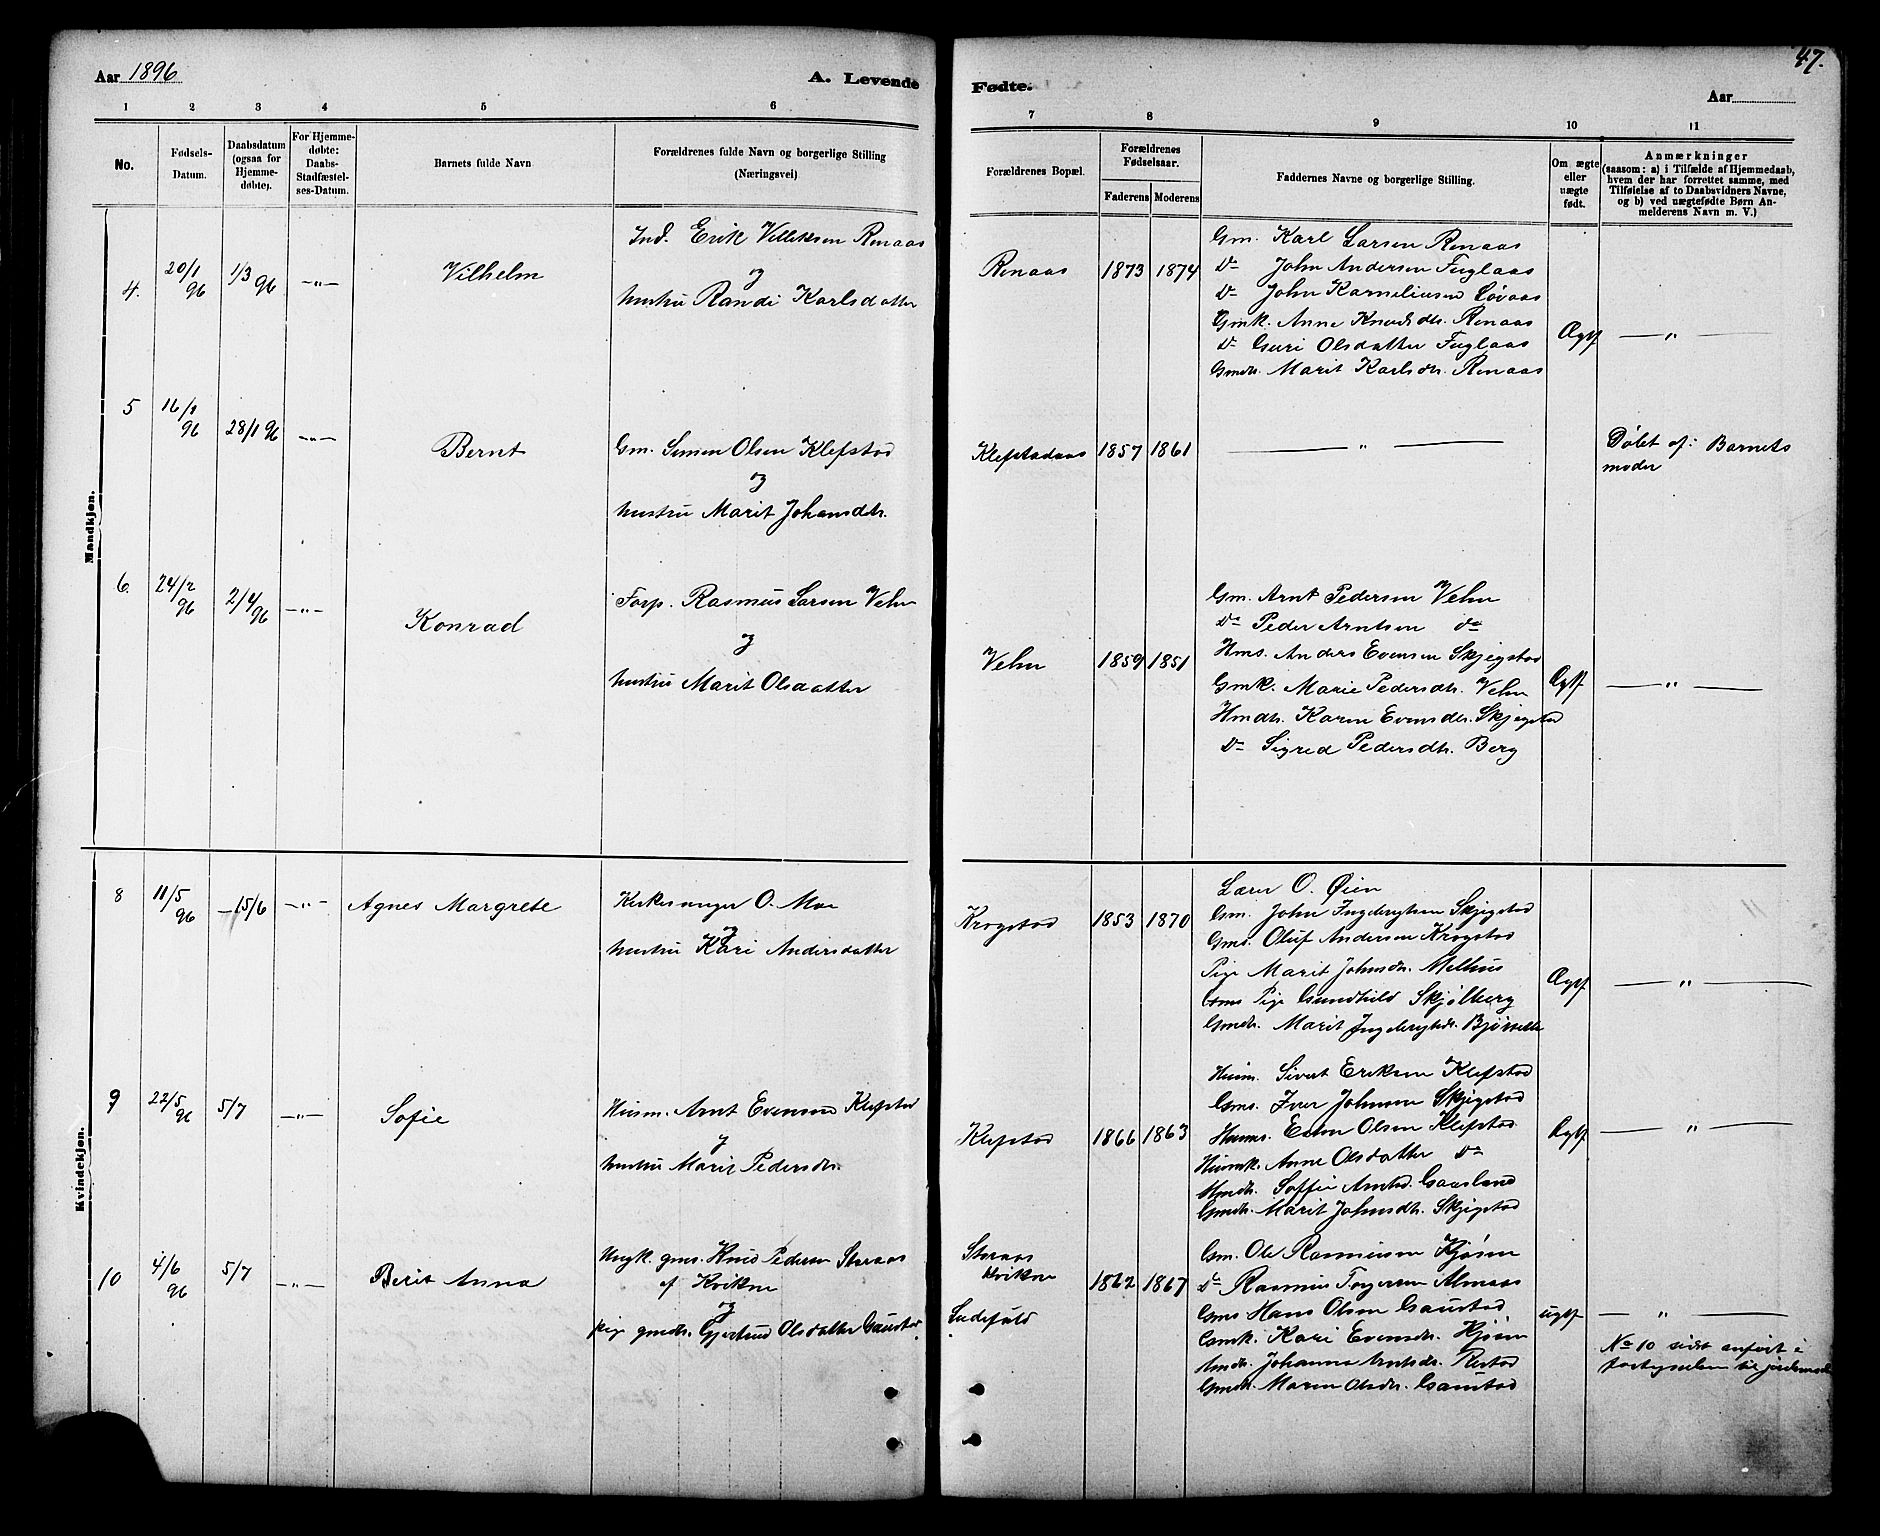 Aar 1896
A. Levende
Fødte.
47.
Aar
1 2 3 4 5 6 7 8 9 10 11
No.
Fødsels-
Datum.
Daabsdatum
(ogsaa for
Hjemme-
døbte).
For Hjemme-
døbte:
Daabs-
Stadfæstel-
ses-Datum.
Barnets fulde Navn
Forældrenes fulde Navn og borgerlige Stilling
(Næringsvei)
Forældrenes Bopæl.
Forældrenes
Fødselsaar.
Faderens Moderens
Faddernes Navne og borgerlige Stilling.
Om ægte
eller
uægte
født.
Anmærkninger
(saasom: a) i Tilfælde af Hjemmedaab,
hvem der har forrettet samme, med
Tilføielse af to Daabsvidners Navne,
og b) ved uægtefødte Børn An-
melderens Navn m. V.)
Mandkjøn.
4. 20/1 96 1/3 96 —"— Vilhelm
Ind. Erik Renaas
og
hustru Randi Karlsdatter
Renaas 1873 1874
Gm. Karl Larsen Renaas
Do John Andersen Fuglaas
Do John Korneliusen Løvaas
Gmk. Anne Knudsdtr. Renaas
Do Guri Olsdatter Fuglaas
Gmdtr. Marit Karlsdtr. Renaas
Ægtf —"—
5 16/1 96 28/1 96 —"— Bernt
Gm. Simen Olsen Klefstad
og
hustru Marit Johansdtr.
Klefstadaas 1857 1861
—"—
Døbt af: Barnets
moder
6. 24/2 96 2/4 96 —"— Konrad
Forp. Rasmus Larsen
og
hustru Marit Olsdatter
1859 1851
Gm. Arnt Pedersen
Do Peder Arntsen do
Hms. Anders Evensen Skjegstad
Gmk. Marie Pedersdtr.
Hmdtr. Karen Evensdtr. Skjegstad
Do Sigred Pedersdtr. Berg
Ægtf —"—
Kvindekjøn.
8 11/5 96 —15/6 —"— Agnes Margrete
Kirkesanger O. Moe
og
hustru Kari Andersdatter
Krogstad 1853 1870
Lærer O. Øien
Gm. John Ingebrigtsen Skjegstad
Gms. Oluf Andersen Krogstad
Pige Marit Johnsdtr. Melhus
Gms Pige Gundhild Skjølberg
Gmdtr. Marit Ingebrigtsdtr.
Ægtf —"—
9 22/5 96 5/7 —"— Sofie
Husm. Arnt Evensen Klefstad
og
hustru Marit Pedersdtr.
Klefstad 1866 1863
Husm. Sivert Eriksen Klefstad
Gms. Iver Johnsen Skjegstad
Husms. Olsen Klefstad
Husmk. Anne Olsdatter Do
Hmdtr. Soffie Arntsd. Gaasland
Gmdtr. Marit Johnsdtr. Skjegstad
Ægtf —"—
10 4/6 96 5/7 —"— Berit Anna
Ungk. gms. Knud Pedersen Storaas
af Kvikne
og
pige gmdtr. Gjertrud Olsdatter Gaustad
Storaas
Kvikne
1862 1867
Gm. Ole Rasmussen Kjøsen
Do Rasmus Almaas
Gms Hans Olsen Gaustad
Gmk. Kari Evensdr. Kjøsen
Hmdtr. Johanna Arntsdr.
Gmdtr. Maren Olsdr. Gaustad
ugtf —"—
No 10 sidst anført i
fortegnelsen til